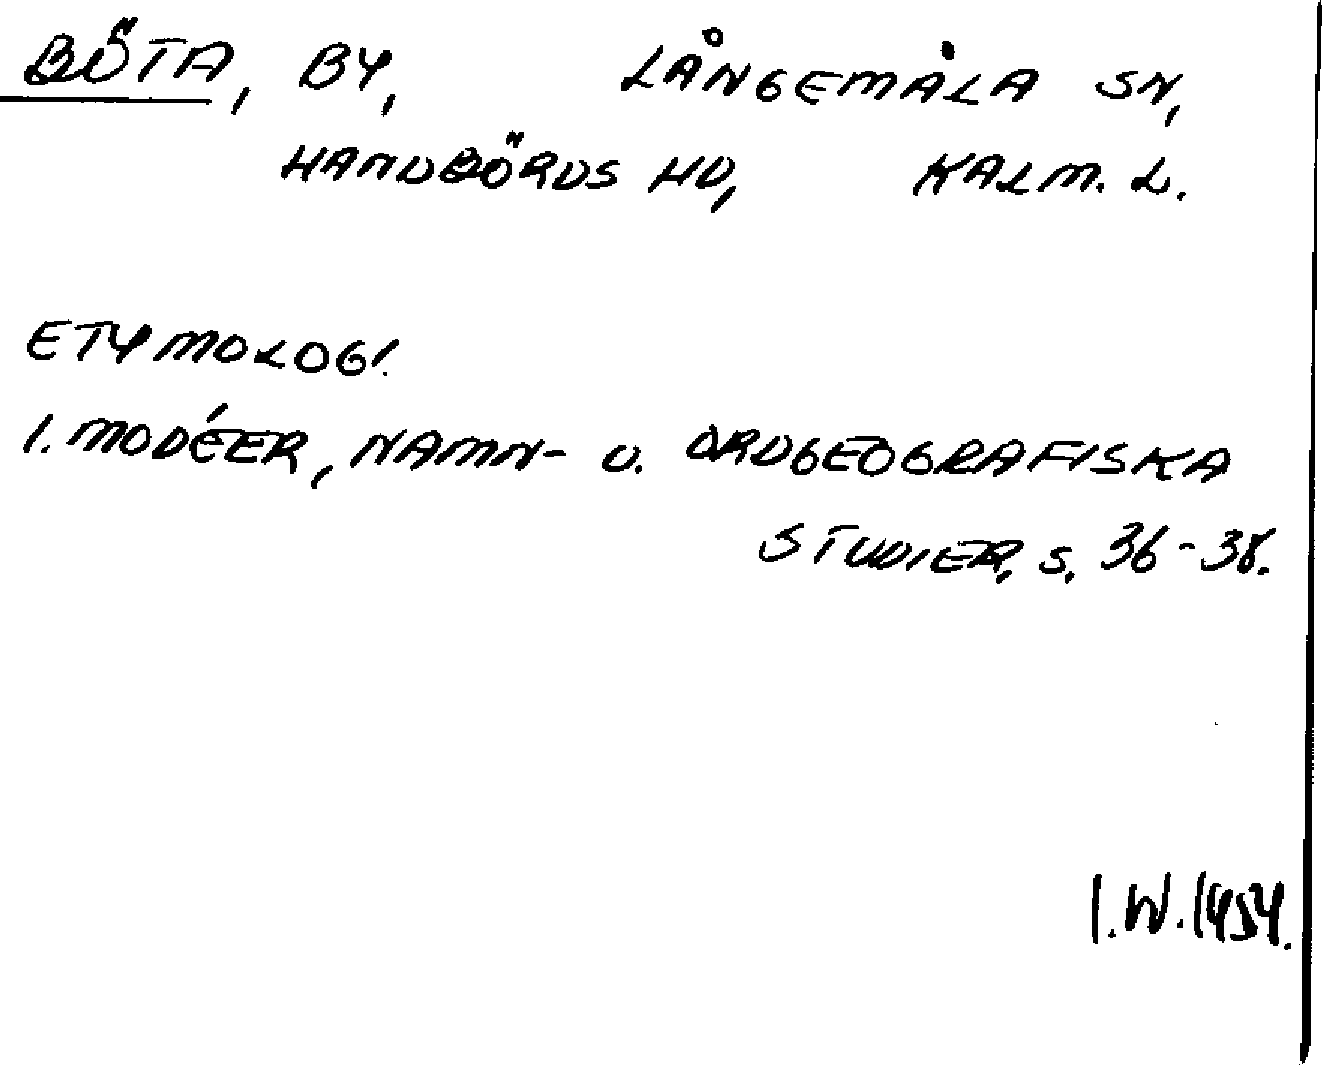 BÖTA, BY, LÅNGEMÅLA SN,
HANDBÖRDS HD, KALM. L.
ETYMOLOGI.
I. MODÉER, NAMN- O. ORDGEOGRAFISKA
STUDIER, S. 36-38.
I.W. 1954.